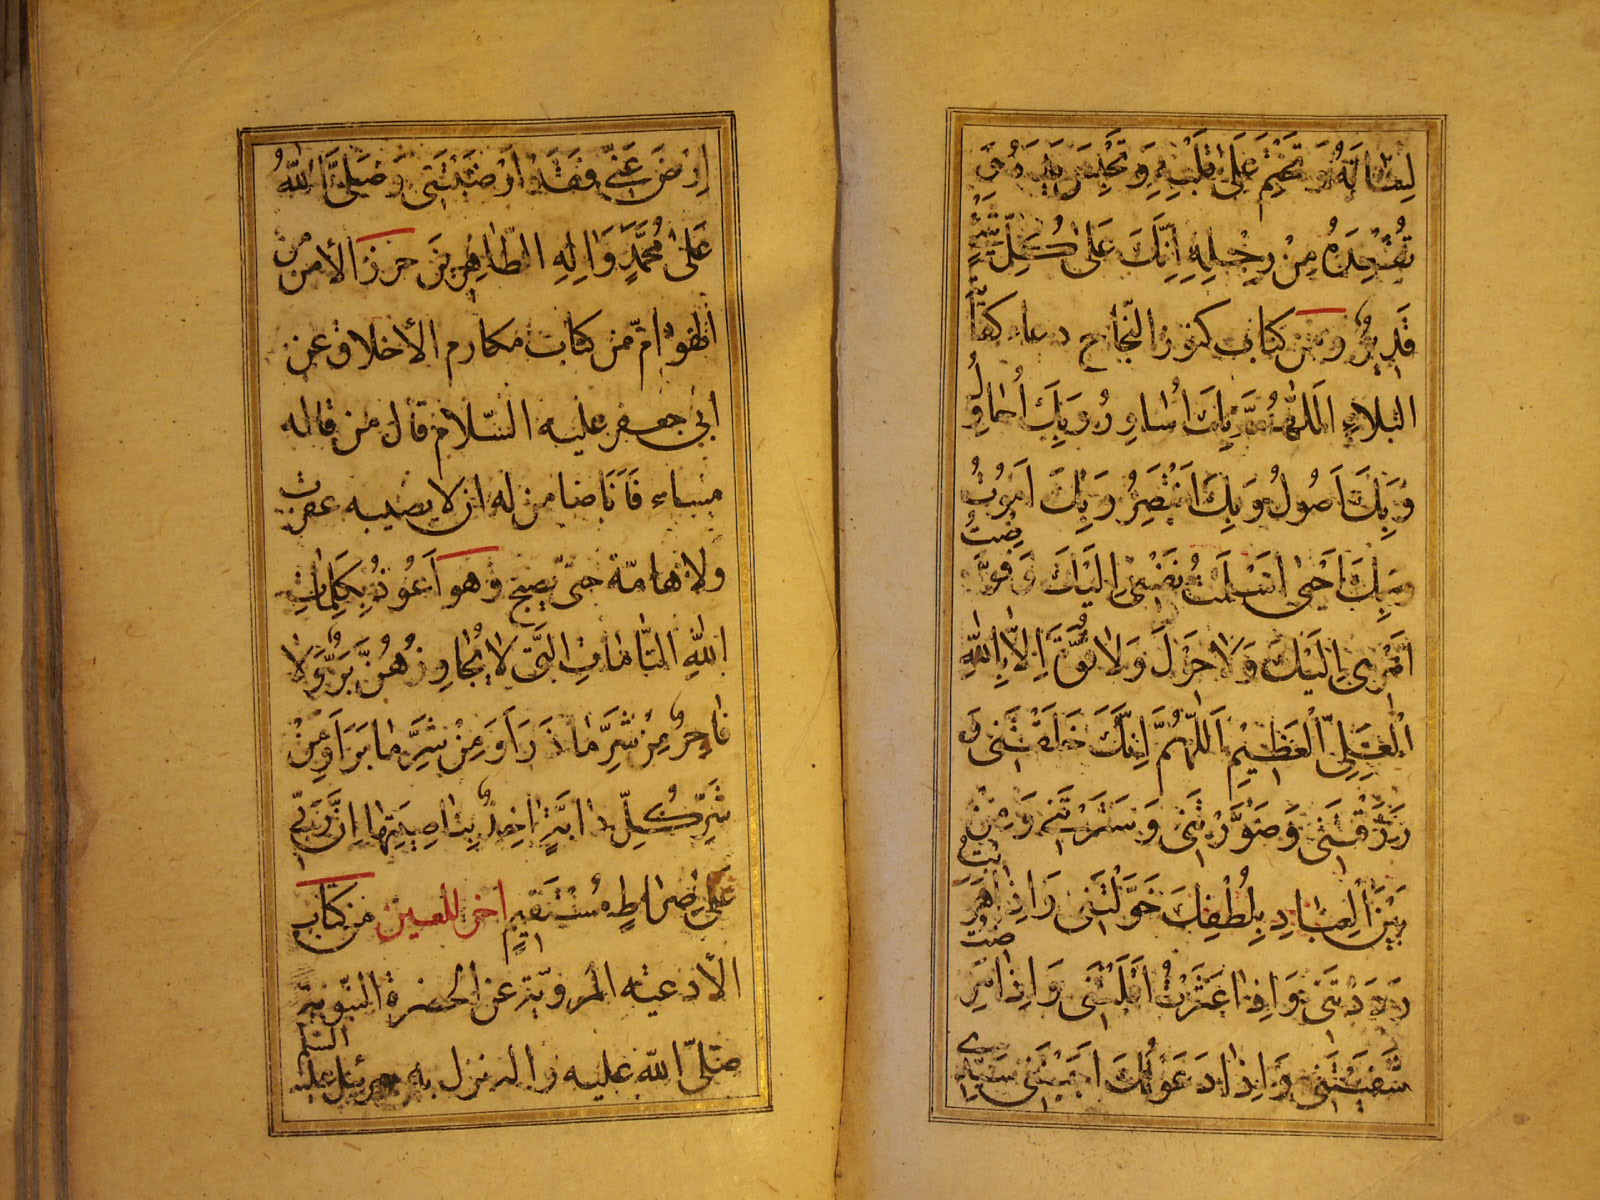 لِسَانَهُ وَتَخْتِمَ عَلَىٰ قَلْبِهِ وَتَحْبِسَ يَدَهُ وَ
تُقْعِدَهُ مِنْ رِجْلِهِ اِنَّكَ عَلىٰ كُلِّ شَيْءٍ
قَدِيرٌ ومن كتاب كنوز النّجاح دعاء كفا
البلاءِ اَللّٰهُمَّ بِكَ اُسٰاوِرُ وَبِكَ اُحٰاوِلُ
وَبِكَ اَصُولُ وَبِكَ اَنْتَصِرُ وَبِكَ اَمُوتُ
وَبِكَ اَحْيٰى اَسْلَمْتُ نَفْسِى اِلَيْكَ وَفَوَّضْتُ
اَمْرِى اِلَيْكَ وَلاٰ حَوْلَ وَلاٰ قُوَّةَ اِلاّٰ بِاللّٰهِ
الْعَلِىِّ الْعَظِيْمِ اَللّٰهُمَّ اِنَّكَ خَلَقْتَنِى وَ
رَزَقْتَنِى وَصَوَّرْتَنِى وَسَتَرْتَنِى وَمِنْ
بَيْنِ الْعِبٰادِ بِلُطْفِكَ خَوَّلْتَنِى وَاِذٰا هَرَبْتُ
رَدَدْتَنِى وَاِذٰا عَثَرْتُ اَقَلْتَنِى وَاِذٰا مَرِضْتُ
شَفَيْتَنِى وَاِذٰا دَعَوْتُكَ اَجَبْتَنِى سَيِّدِى
اِرْضَ عَنّى فَقَدْ اَرْضَيْتَنِى وَصَلَّى اللّٰهُ
عَلىٰ مُحَمَّدٍ وَاٰلِهِ الطّٰاهِرِينَ حرز الأمن من
كتاب مكارم الأخلاق عن
ابى جعفر عليه السّلام قال من قاله
مساء فَاَنَا ضامن له ان لا يصيبه عقرب
ولا هامّة حتّى يصبح وهو اَعُوذُ بِكَلِمٰاتِ
اللّٰهِ التّٰامّٰاتِ الَّتى لاٰ يُجٰاوِزُهُنَّ بَرٌّ وَلاٰ
فٰاجِرٌ مِنْ شَرِّ مٰا ذَرَاَ وَمِنْ شَرِّ مٰا بَرَاَ وَمِنْ
شَرِّ كُلِّ دٰابَّةٍ اٰخِذٌ بِنٰاصِيَتِهٰا اِنَّ رَبّى
عَلىٰ صِرٰاطٍ مُسْتَقِيمٍ اخرى للعين من كتاب
الأدعية المرويّة عن الحضرة النّبويّة
صلّى اللّه عليه واله نزل به جبرئيل عليه السّلم